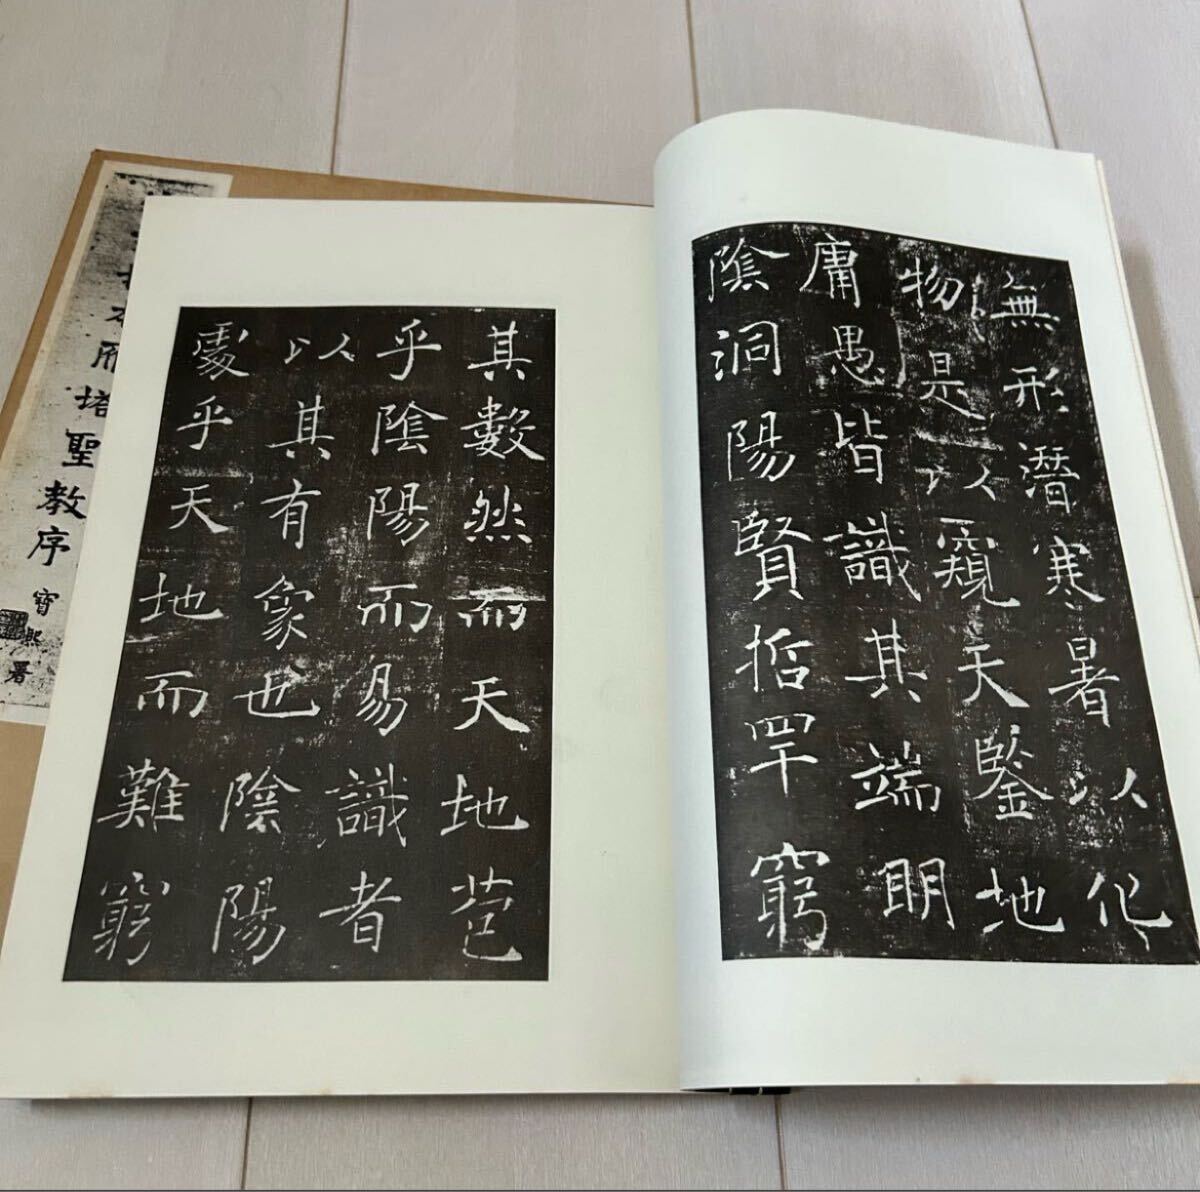 無形潛寒暑以化
物是以窺天鑒地
庸愚皆識其端明
陰洞陽賢哲罕窮
其數然而天地苞
乎陰陽而易識者
以其有象也陰陽
處乎天地而難窮
拓本雁塔聖教序
寶熙署